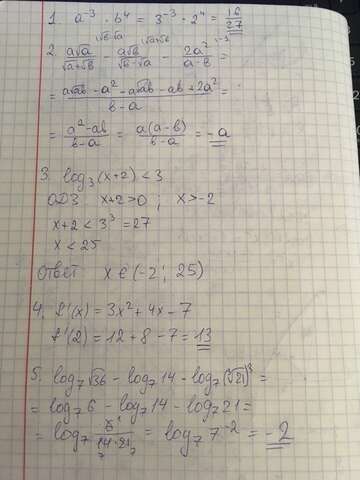 1. a⁻³ · b⁴ = 3⁻³ · 2⁴ = 16/27
2. a√a/(√a+√b) - a√b/(√b-√a) - 2a²/(a-b) =
= (a√ab - a² - a√ab - ab + 2a²)/(b-a) =
= (a² - ab)/(b-a) = a(a-b)/(b-a) = -a
3. log₃(x+2) < 3
ОДЗ x+2>0 ; x>-2
x+2 < 3³ = 27
x < 25
Ответ: x ∈ (-2 ; 25)
4. f'(x) = 3x² + 4x - 7
f'(2) = 12 + 8 - 7 = 13
5. log₇√36 - log₇14 - log₇(√21)² =
= log₇6 - log₇14 - log₇21 =
= log₇ 6/(14·21) = log₇7⁻² = -2